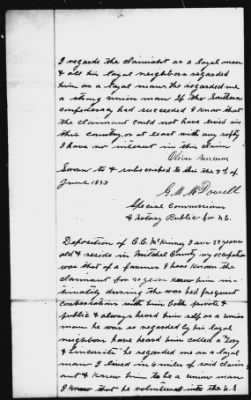 I regarde the claimant as a loyal man
& all his loyal neighbors regarded
him as a loyal man he regarded me
a strong union man If the Southern
confederacy had succeeded I know that
the claimant could not have lived in
this country or at least with any safty
I have no interest in this claim
Oliver
Sworn to & subscribed to this the 7th of
June 1873
G. M. McDowell
Special Commissioner
& Notary Public for N.C.
Deposition of C.C. McKinney I am 37 years
old & reside in Mitchel County my occupation
was that of a farmer I have known the
claimant for 20 years knew him in-
timately during the war had frequent
conversations with him both private &
public & always heard him self as a union
man he was so regarded by his loyal
neighbors have heard him called a "Tory
& Lincolnite" he regarded me as a loyal
man I lived in 6 miles of said claim
ant & knew him to be a union man
I know that he volunteered into the U.S